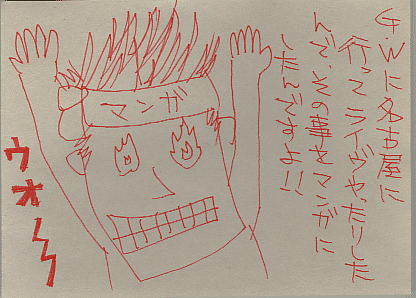 G.Wに名古屋に
行ってライヴやったりした
んで、その事をマンガに
したんですよ!!
マンガ
ウオ〜